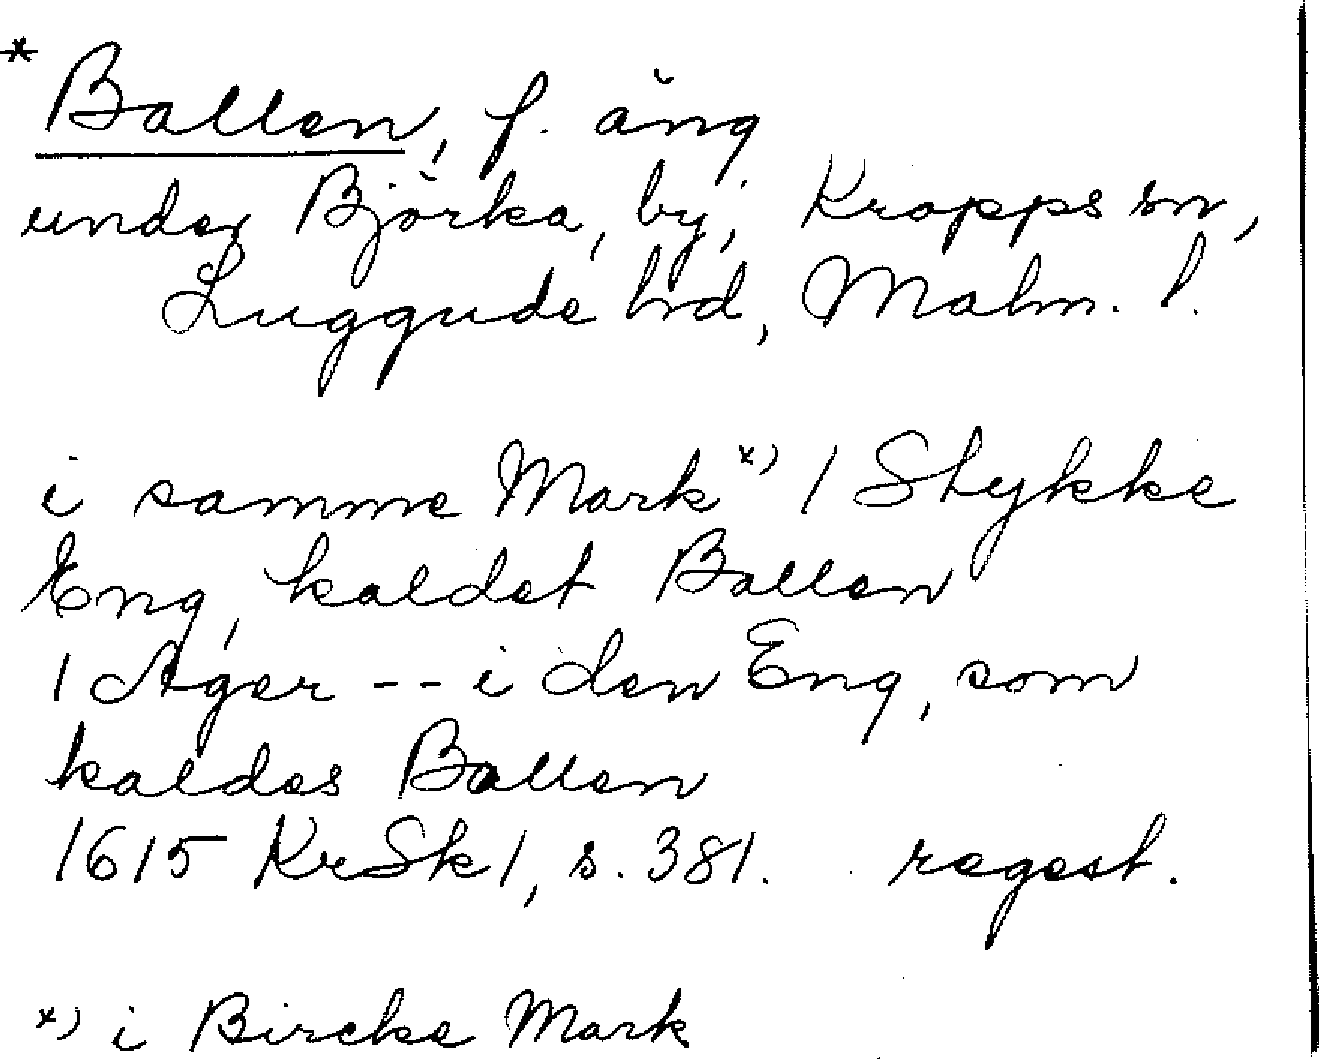 * Ballen, f. äng
under Björka, by, Kropps sn,
Luggude hd, Malm. l.
i samme Mark *) 1 Stykke
Eng, kaldet Ballen
1 Ager -- i den Eng, som
kaldes Ballen
1615 KrSk 1, s. 381. regest.
*) i Bircke Mark